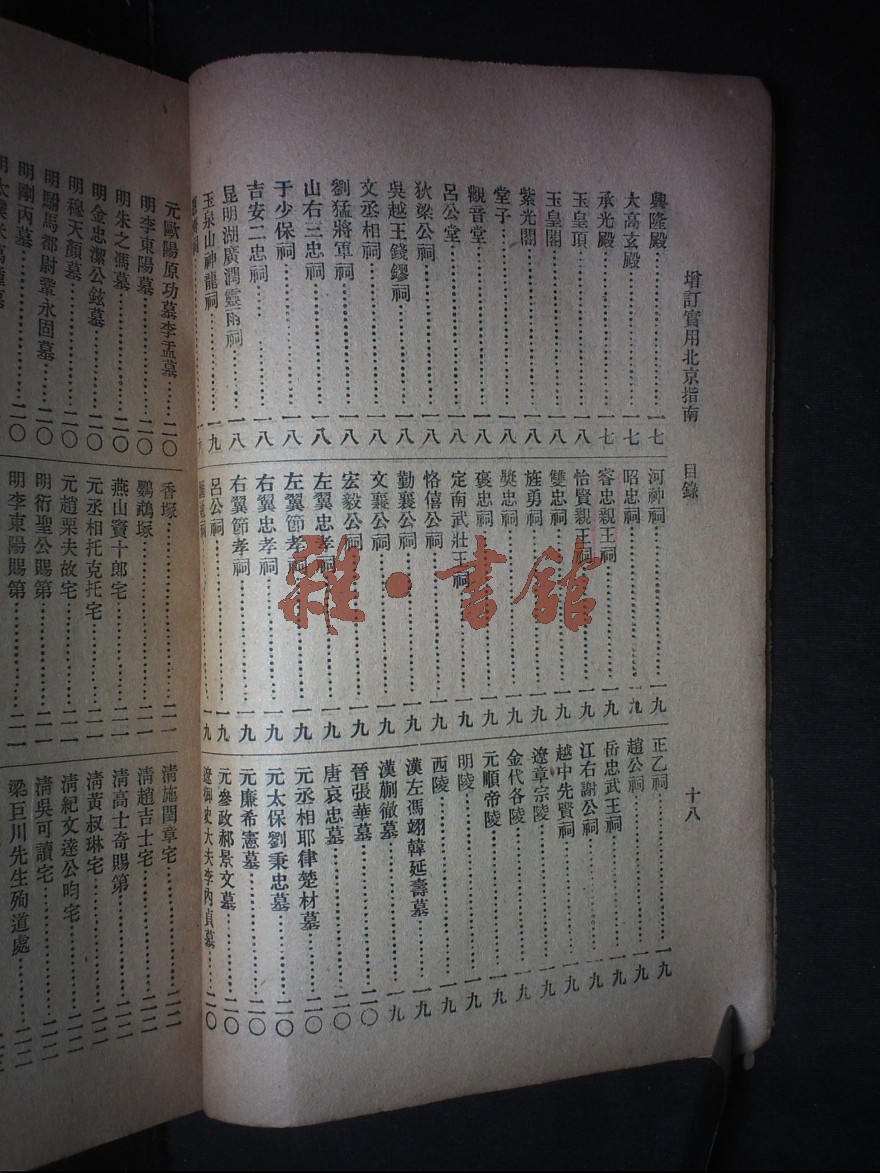 增訂實用北京指南 目錄 十八
興隆殿⋯⋯一七
大高玄殿⋯⋯一七
承光殿⋯⋯一七
玉皇頂⋯⋯一八
玉皇閣⋯⋯一八
紫光閣⋯⋯一八
堂子⋯⋯一八
觀音堂⋯⋯一八
呂公堂⋯⋯一八
狄梁公祠⋯⋯一八
吳越王錢鏐祠⋯⋯一八
文丞相祠⋯⋯一八
劉猛將軍祠⋯⋯一八
山右三忠祠⋯⋯一八
于少保祠⋯⋯一八
吉安二忠祠⋯⋯一八
昆明湖廣潤靈雨祠⋯⋯一八
玉泉山神龍祠⋯⋯一九
河神祠⋯⋯一九
昭忠祠⋯⋯一九
睿忠親王祠⋯⋯一九
怡賢親王祠⋯⋯一九
雙忠祠⋯⋯一九
旌勇祠⋯⋯一九
獎忠祠⋯⋯一九
褒忠祠⋯⋯一九
定南武壯王祠⋯⋯一九
恪僖公祠⋯⋯一九
勤襄公祠⋯⋯一九
文襄公祠⋯⋯一九
宏毅公祠⋯⋯一九
左翼忠孝祠⋯⋯一九
左翼節孝祠⋯⋯一九
右翼忠孝祠⋯⋯一九
右翼節孝祠⋯⋯一九
呂公祠⋯⋯一九
正乙祠⋯⋯一九
趙公祠⋯⋯一九
岳忠武王祠⋯⋯一九
江右謝公祠⋯⋯一九
越中先賢祠⋯⋯一九
遼章宗陵⋯⋯一九
金代各陵⋯⋯一九
元順帝陵⋯⋯一九
明陵⋯⋯一九
西陵⋯⋯一九
漢左馮翊韓延壽墓⋯⋯一九
漢蒯徹墓⋯⋯一九
晉張華墓⋯⋯二〇
唐哀忠墓⋯⋯二〇
元丞相耶律楚材墓⋯⋯二〇
元太保劉秉忠墓⋯⋯二〇
元廉希憲墓⋯⋯二〇
元參政郝景文墓⋯⋯二〇
遼御史大夫李內貞墓⋯⋯二〇
元歐陽原功墓李孟墓⋯⋯二〇
明李東陽墓⋯⋯二〇
明朱之馮墓⋯⋯二〇
明金忠潔公鉉墓⋯⋯二〇
明穆天顏墓⋯⋯二〇
明駙馬都尉鞏永固墓⋯⋯二〇
明剛丙墓⋯⋯二〇
香塚⋯⋯二一
鸚鵡塚⋯⋯二一
燕山竇十郎宅⋯⋯二一
元丞相托克托宅⋯⋯二一
元趙栗夫故宅⋯⋯二一
明衍聖公賜第⋯⋯二一
明李東陽賜第⋯⋯二一
清施閏章宅⋯⋯二二
清趙吉士宅⋯⋯二二
清高士奇賜第⋯⋯二二
清黃叔琳宅⋯⋯二二
清紀文達公昀宅⋯⋯二二
清吳可讀宅⋯⋯二二
梁巨川先生殉道處
雜·書館